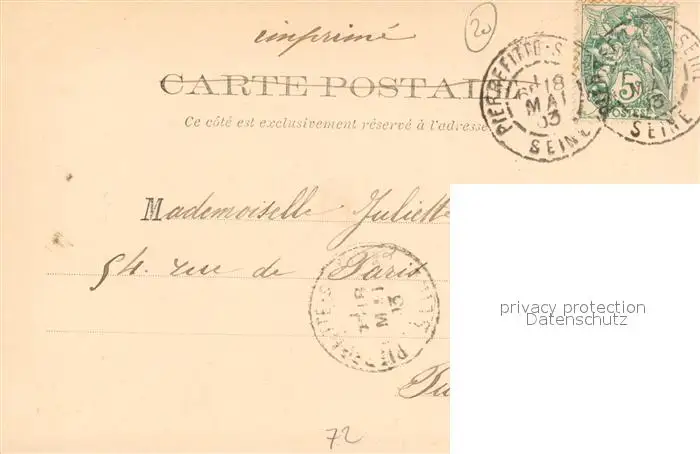 20
imprimé
CARTE POSTALE
Ce côté est exclusivement réservé à l'adresse
PIERREFITTE-S
18
MAI
03
SEINE
5
POSTES
SEINE
Mademoiselle Juliette
54. rue de Paris
PIERREFITTE-S
18
MAI
03
privacy protection
Datenschutz
72